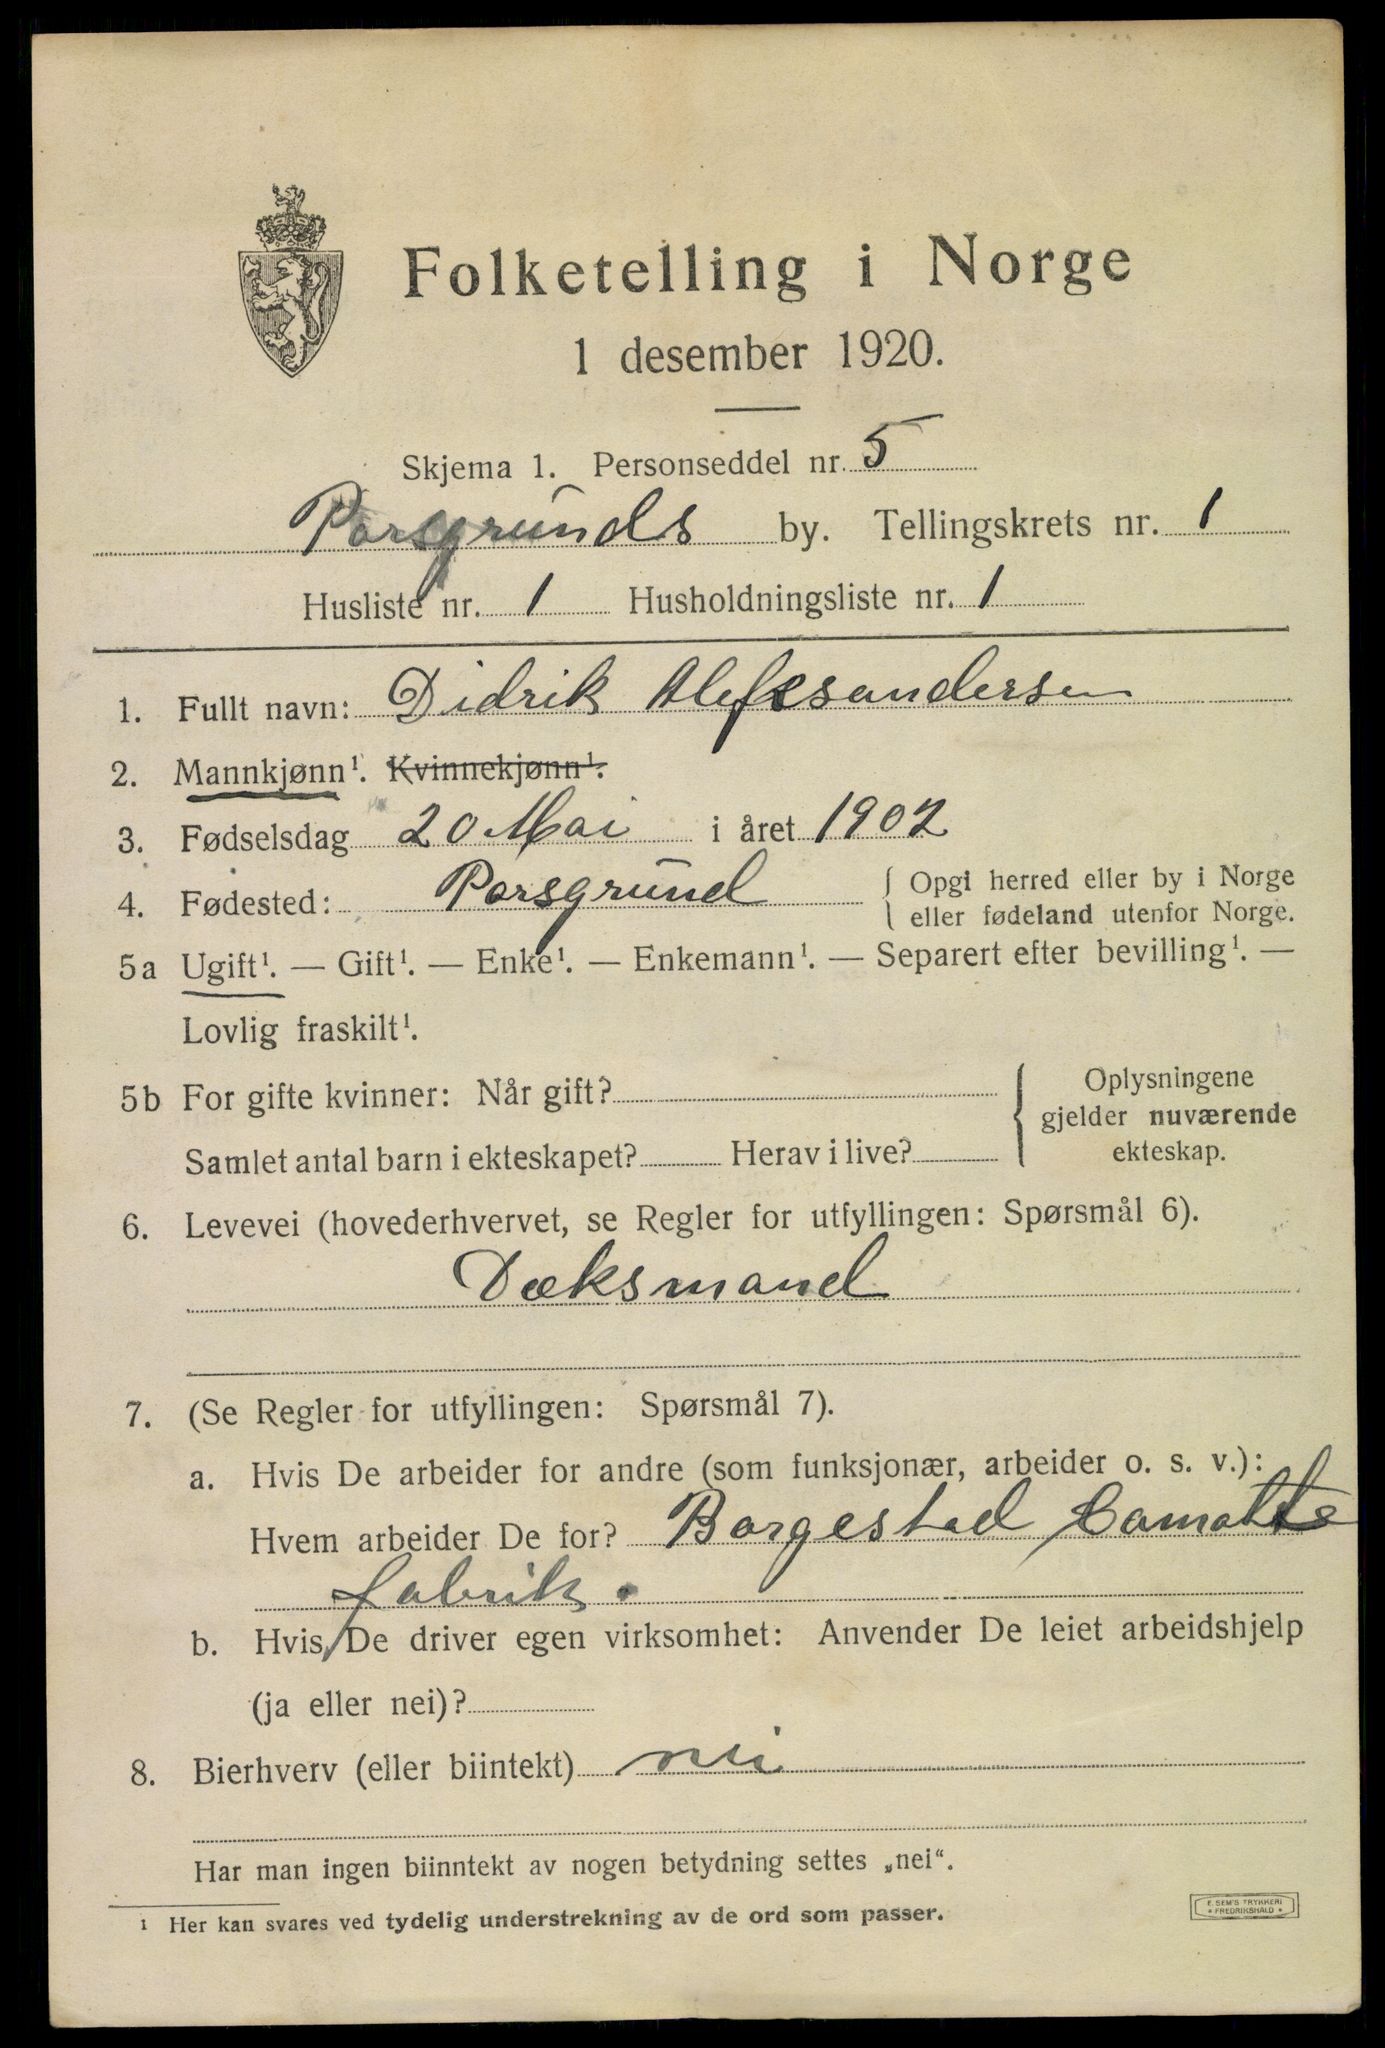 Folketelling i Norge
1 desember 1920.
Skjema 1. Personseddel nr. 5
Porsgrunds by. Tellingskrets nr. 1
Husliste nr. 1 Husholdningsliste nr. 1
1. Fullt navn: Didrik Aleksandersen
2. Mannkjønn¹. Kvinnekjønn¹.
3. Fødselsdag 20 Mai i året 1902
4. Fødested: Porsgrund { Opgi herred eller by i Norge
eller fødeland utenfor Norge.
5a Ugift¹. — Gift¹. — Enke¹. — Enkemann¹. — Separert efter bevilling¹. —
Lovlig fraskilt¹.
5b For gifte kvinner: Når gift? { Oplysningene
gjelder nuværende
Samlet antal barn i ekteskapet? Herav i live? ekteskap.
6. Levevei (hovederhvervet, se Regler for utfyllingen: Spørsmål 6).
Dæksmand
7. (Se Regler for utfyllingen: Spørsmål 7).
a. Hvis De arbeider for andre (som funksjonær, arbeider o. s. v.):
Hvem arbeider De for? Borgestad Camotte
fabrik.
b. Hvis De driver egen virksomhet: Anvender De leiet arbeidshjelp
(ja eller nei)?
8. Bierhverv (eller biintekt) nei
Har man ingen biinntekt av nogen betydning settes „nei“.
¹ Her kan svares ved tydelig understrekning av de ord som passer.
E. SEM'S TRYKKERI
* FREDRIKSHALD *